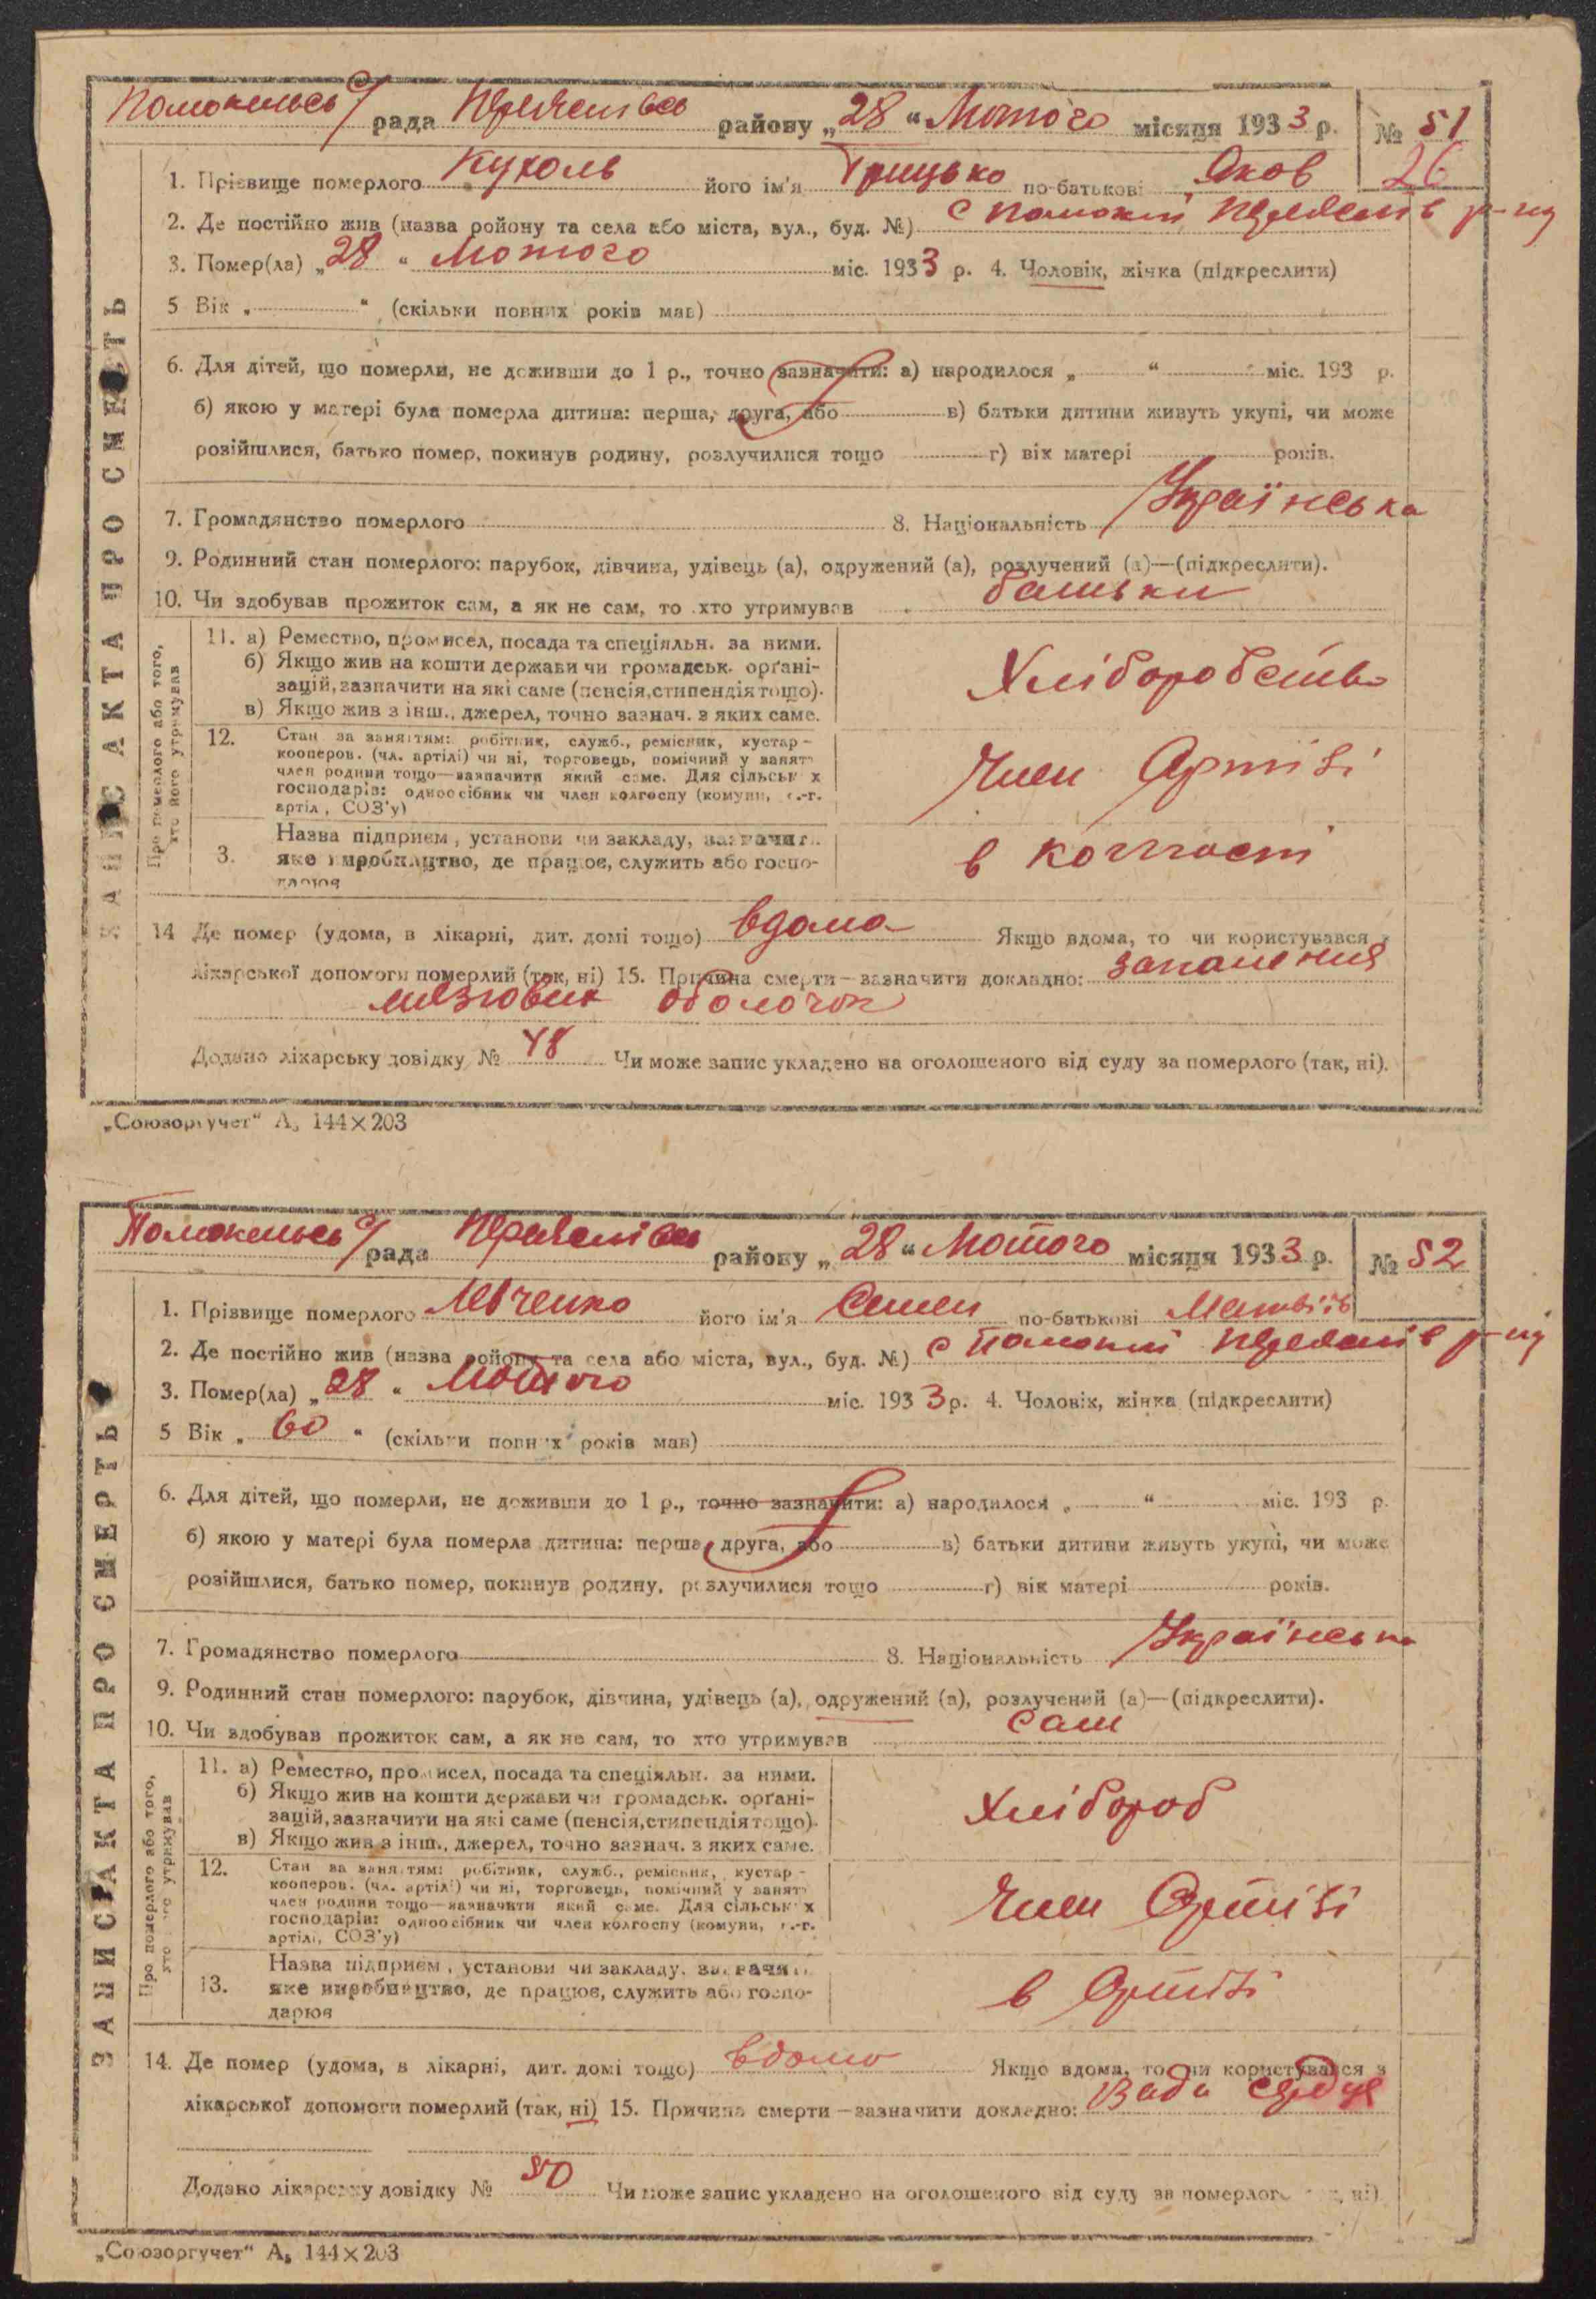 Помокельсь С/ рада Переяслівсь району „28“ Лютого місяця 1933 р. № 51
1. Прізвище померлого Кухоль його ім'я Грицько по-батькові Яков 26
2. Де постійно жив (назва ройону та села або міста, вул., буд. №) с Помоклі Переяслів р-ну
3. Помер(ла) „28“ Лютого міс. 1933 р. 4. Чоловік, жінка (підкреслити)
5 Вік „ “ (скільки повних років мав)
6. Для дітей, що померли, не доживши до 1 р., точно зазначити: а) народилося „ “ міс. 193 р.
б) якою у матері була померла дитина: перша, друга, або в) батьки дитини живуть укупі, чи може
розійшлися, батько помер, покинув родину, розлучилися тощо г) вік матері років.
7. Громадянство померлого 8. Національність Українська
9. Родинний стан померлого: парубок, дівчина, удівець (а), одружений (а), розлучений (а)—(підкреслити).
10. Чи здобував прожиток сам, а як не сам, то хто утримував батьки
ЗАПИС АКТА ПРО СМЕРТЬ
Про померлого або того, хто його утримував
11. а) Ремество, промисел, посада та спеціяльн. за ними.
б) Якщо жив на кошти держави чи громадськ. орґані-
зацій, зазначити на які саме (пенсія, стипендія тощо).
в) Якщо жив з інш., джерел, точно зазнач. з яких саме.
Хліборобство
12. Стан за заняттям: робітник, служб., ремісник, кустар -
кооперов. (чл. артілі) чи ні, торговець, помічний у занят
член родини тощо—зазначити який саме. Для сільськ х
господарів: одноосібник чи член колгоспу (комуни, с.-г.
артіл, СОЗ'у)
Член Артілі
3. Назва підприєм, установи чи закладу, зазначит
яке виробництво, де працює, служить або госпо-
дарює
в колгоспі
14 Де помер (удома, в лікарні, дит. домі тощо) вдома Якщо вдома, то чи користувався з
лікарської допомоги померлий (так, ні) 15. Причина смерти—зазначити докладно: запаления
мозговик оболочок
Додано лікарську довідку № 48 Чи може запис укладено на оголошеного від суду за померлого (так, ні).
„Союзоргучет“ А₅ 144×203
Помокельсь С/ рада Переяслівсь району „28“ Лютого місяця 1933 р. № 52
1. Прізвище померлого Левченко його ім'я Семен по-батькові Матвіїв
2. Де постійно жив (назва ройону та села або міста, вул., буд. №) с Помоклі Переяслів р-ну
3. Помер(ла) „28“ Лютого міс. 1933 р. 4. Чоловік, жінка (підкреслити)
5 Вік „60“ (скільки повних років мав)
6. Для дітей, що померли, не доживши до 1 р., точно зазначити: а) народилося „ “ міс. 193 р.
б) якою у матері була померла дитина: перша, друга, або в) батьки дитини живуть укупі, чи може
розійшлися, батько помер, покинув родину, розлучилися тощо г) вік матері років.
7. Громадянство померлого 8. Національність Українська
9. Родинний стан померлого: парубок, дівчина, удівець (а), одружений (а), розлучений (а)—(підкреслити).
10. Чи здобував прожиток сам, а як не сам, то хто утримував сам
ЗАПИС АКТА ПРО СМЕРТЬ
Про померлого або того, хто його утримував
11. а) Ремество, промисел, посада та спеціяльн. за ними.
б) Якщо жив на кошти держави чи громадськ. орґані-
зацій, зазначити на які саме (пенсія, стипендія тощо).
в) Якщо жив з інш., джерел, точно зазнач. з яких саме.
Хлібороб
12. Стан за заняттям: робітник, служб., ремісник, кустар -
кооперов. (чл. артілі) чи ні, торговець, помічний у занят
член родини тощо—зазначити який саме. Для сільськ х
господарів: одноосібник чи член колгоспу (комуни, с.-г.
артілі, СОЗ'у)
Член Артілі
13. Назва підприєм, установи чи закладу, зазначи
яке виробництво, де працює, служить або госпо-
дарює
в Артілі
14. Де помер (удома, в лікарні, дит. домі тощо) вдома Якщо вдома, то чи користувався з
лікарської допомоги померлий (так, ні) 15. Причина смерти—зазначити докладно: Вада сердця
Додано лікарську довідку № 50 Чи може запис укладено на оголошеного від суду за померлого ні).
„Союзоргучет“ А₅ 144×203